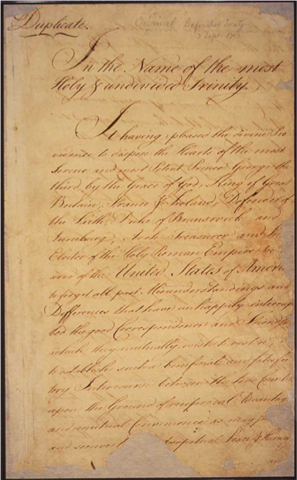 Duplicate.
Definitive Treaty
In the Name of the most
Holy & undivided Trinity.
It having pleased the divine Pro
vidence to dispose the Hearts of the most
Serene and most Potent Prince George the
third, by the Grace of God, King of Great
Britain, France & Ireland, Defender of
the Faith, Duke of Brunswick and
Lunebourg, Arch Treasurer and
Elector of the Holy Roman Empire
of the United States of America
to forget all past Misunderstandings and
Differences that have unhappily interrup
ted the good Correspondence and Friendship
which they mutually wish to restore;
to establish such a beneficial and satisfac
tory Intercourse between the two Count
upon the Ground of reciprocal Advantag
and mutual Convenience as may
and secure perpetual Peace & Harmony